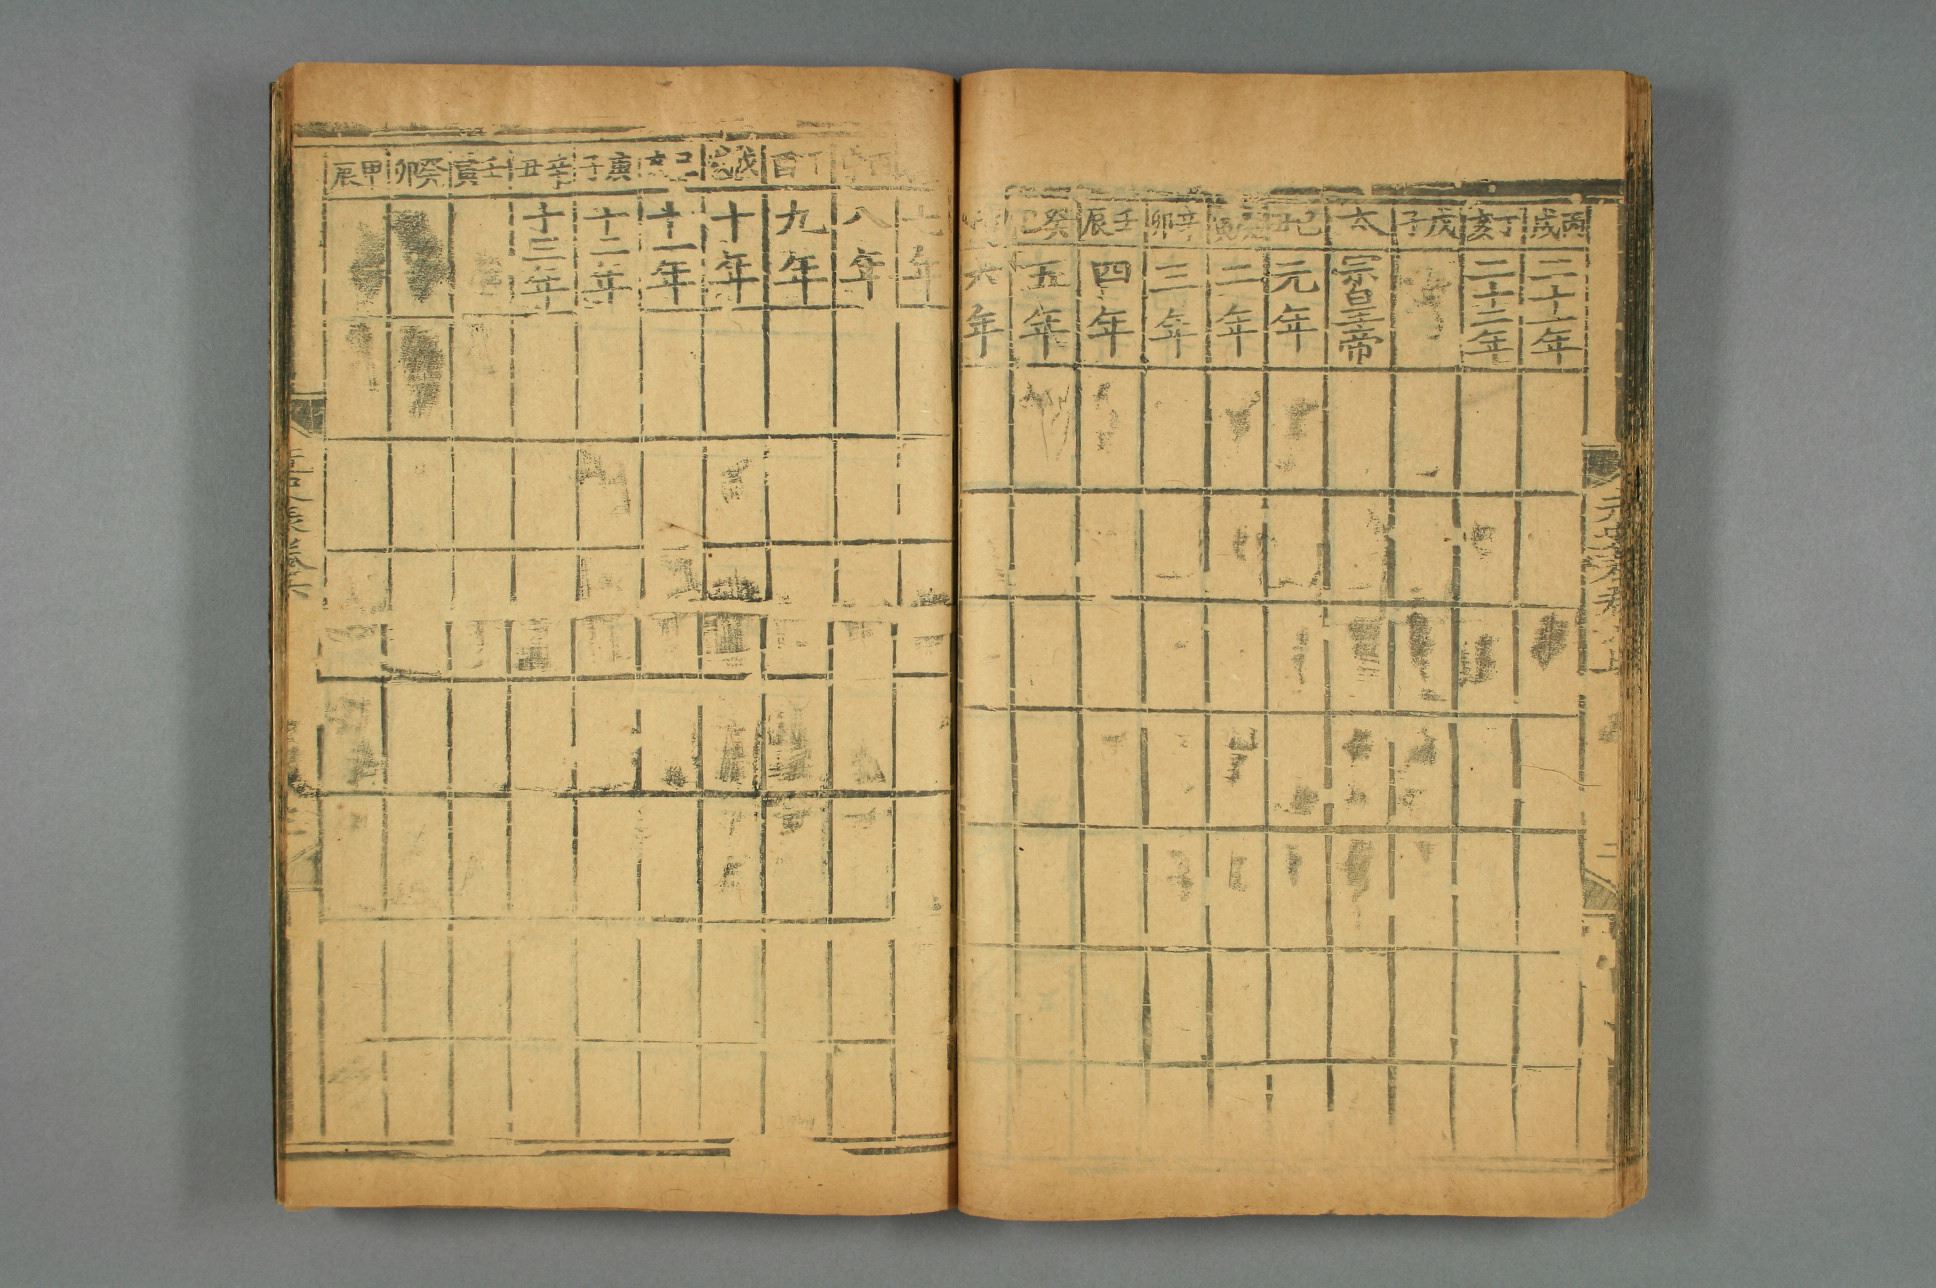 丙戌 二十一年
丁亥 二十二年
戊子
太宗皇帝
己 元年
庚寅 二年
辛卯 三年
壬辰 四年
癸巳 五年
六年
七年
八年
丁酉 九年
戊戌 十年
己亥 十一年
庚子 十二年
辛丑 十三年
壬寅
癸卯
甲辰
元史表卷六
二
元史表卷六